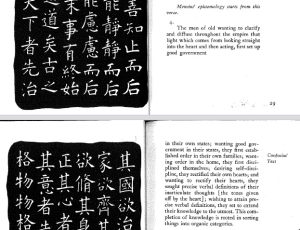 善知止而后
能靜靜而后
能慮慮而后
末事有終始
道矣古之
天下者先治
Mencius' epistemology starts from this
verse.
4.
The men of old wanting to clarify
and diffuse throughout the empire that
light which comes from looking straight
into the heart and then acting, first set up
good government
29
其國欲治
家欲齊其
欲脩其身
正其心者
其意者先
格物物格
in their own states; wanting good gov-
ernment in their states, they first estab-
lished order in their own families; want-
ing order in the home, they first disci-
plined themselves; desiring self-disci-
pline, they rectified their own hearts; and
wanting to rectify their hearts, they
sought precise verbal definitions of their
inarticulate thoughts [the tones given
off by the heart]; wishing to attain pre-
cise verbal definitions, they set to extend
their knowledge to the utmost. This com-
pletion of knowledge is rooted in sorting
things into organic categories.
Confucius'
Text